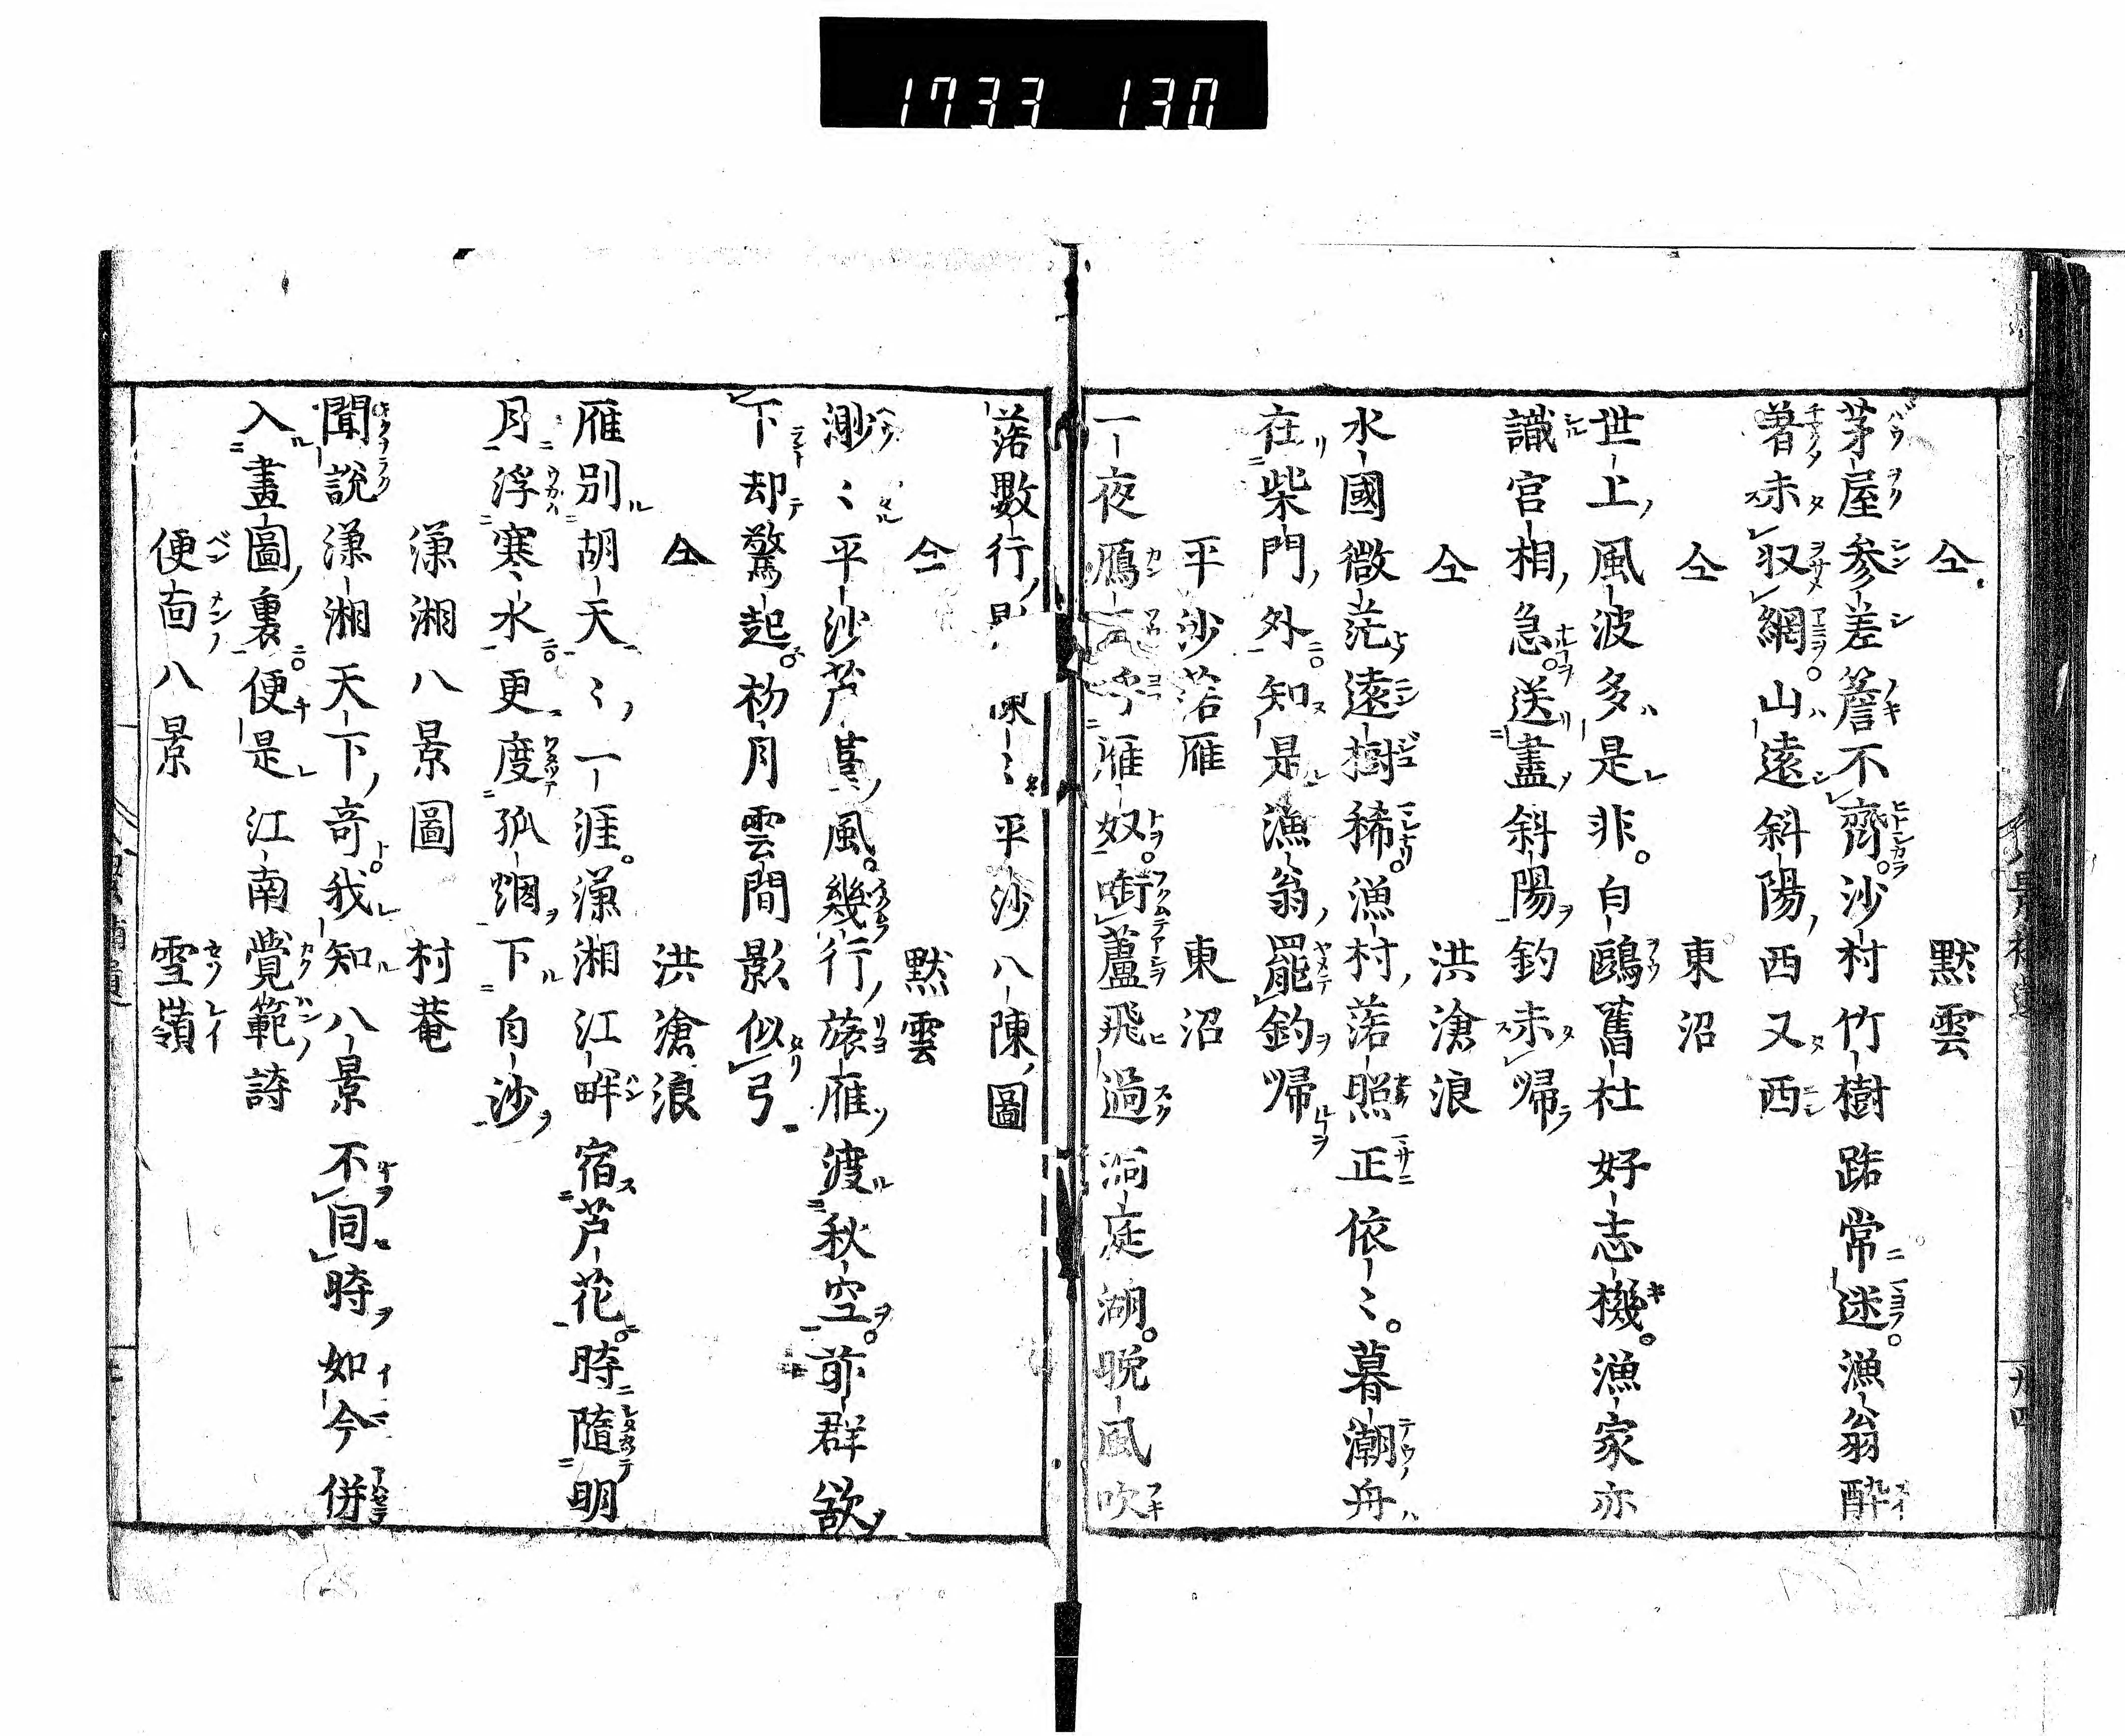 1733 130
仝 默雲
茅屋参差簷不齊沙村竹樹路常迷漁翁酔
着未収網山遠斜陽西又西
仝 東沼
世上風波多是非白鷗舊社好志機漁家亦
識官相急送盡斜陽釣未帰
仝 洪滄浪
水國微茫遠樹稀漁村落照正依〻暮潮舟
在柴門外知是漁翁罷釣帰
平沙落雁 東沼
一夜鴈 呼雁奴啣蘆飛過洞庭湖晩風吹
落數行 〻平沙八陳圖
仝 默雲
渺〻平沙芦 風幾行旅雁渡秋空前群欲
下却驚起初月雲間影似弓
仝 洪滄浪
雁別胡天〻一涯潇湘江畔宿芦花時隨明
月浮寒水更度孤烟下白沙
潇湘八景圖 村菴
聞說潇湘天下奇我知八景不同時如今併
入畫圖裏便是江南覺範詩
便面八景 雪嶺